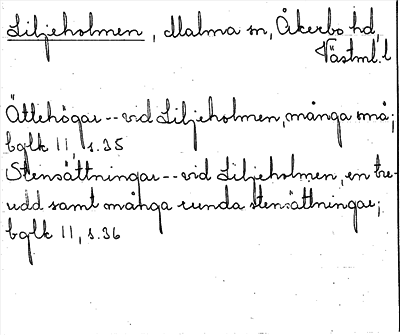 Liljeholmen, Malma sn, Åkerbo hd,
Västml. l
Ättehögar -- vid Liljeholmen, många små;
bglk 11, s. 35
Stensättningar -- vid Liljeholmen, en tre-
udd samt många runda stensättningar;
bglk 11, s. 36